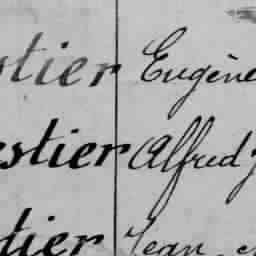 stier Eugène
estier Alfred J
tier Jean